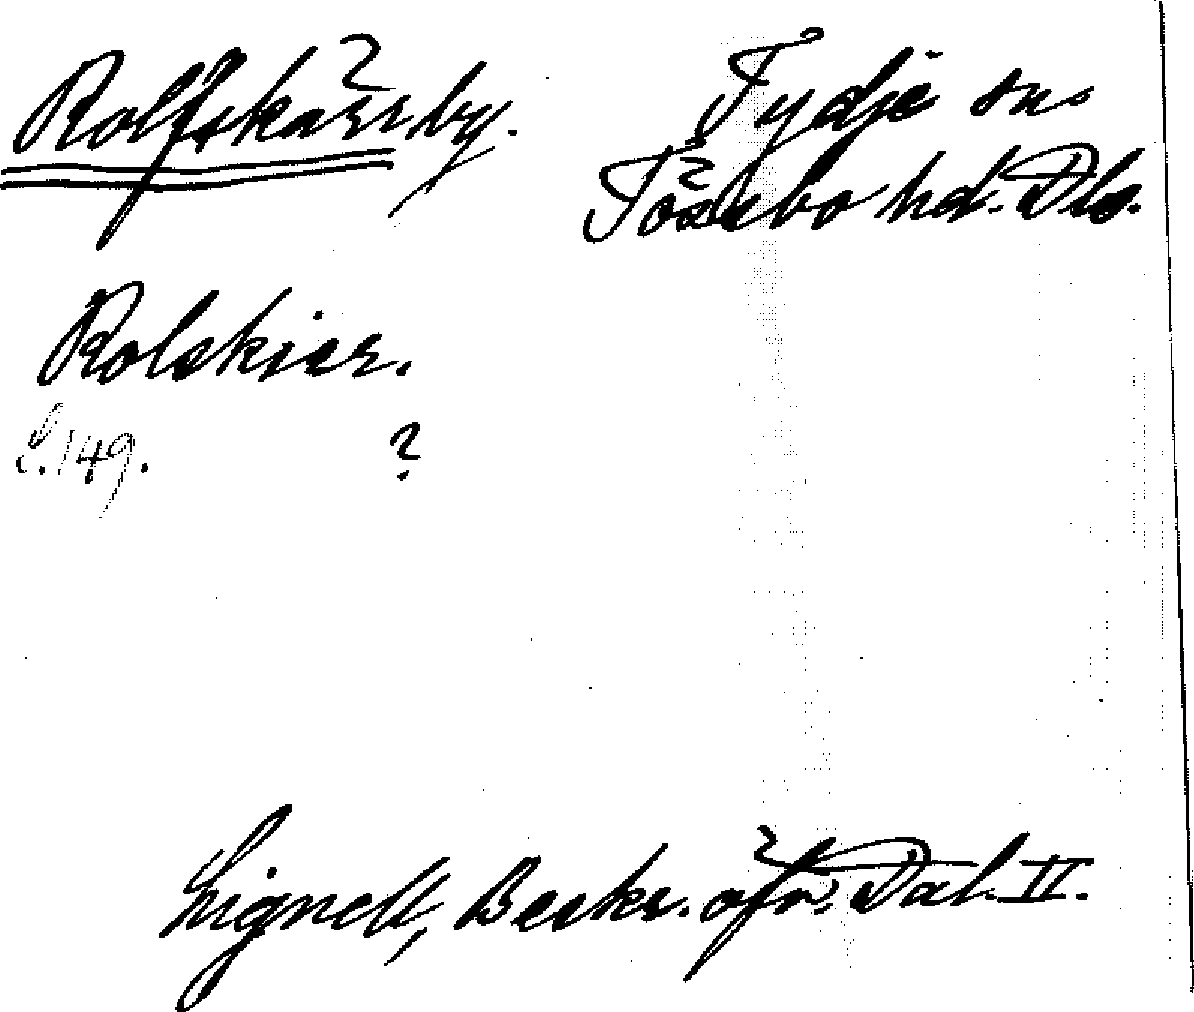 Rolfskärr, by. Tydje sn.
Tössbo hd. Dls.
Rolskier.
L. 149. ?
Lignell, Beskr. öfv. Dal. II.